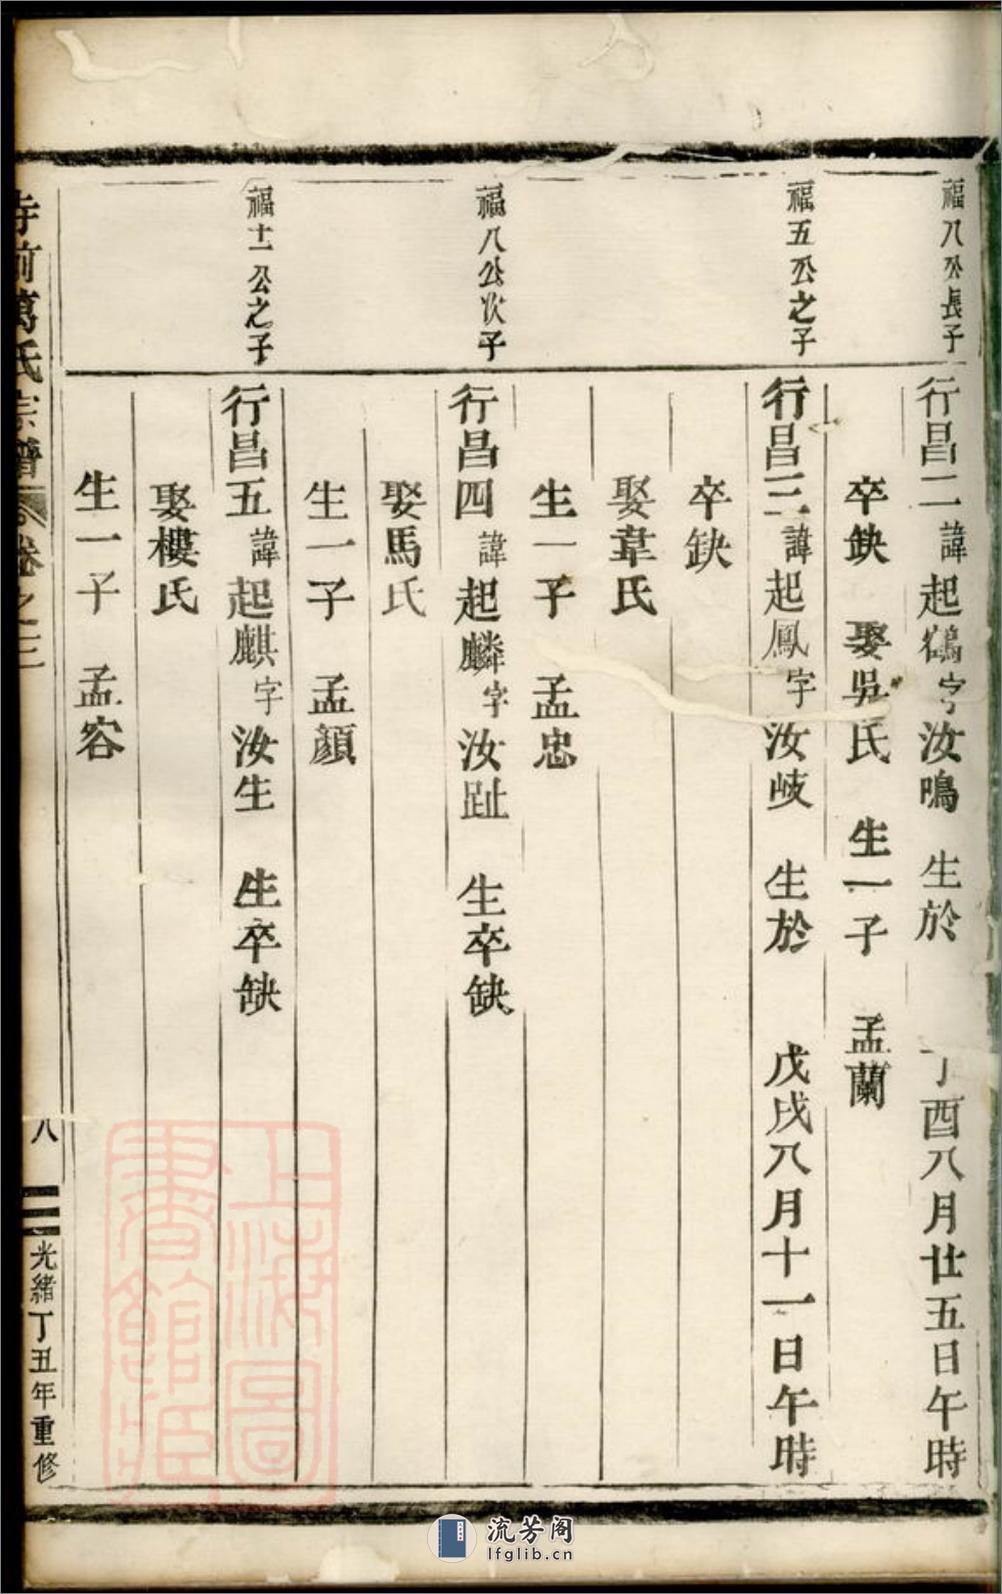 福八公長子
行昌二諱起鶴字汝鳴 生於 丁酉八月廿五日午時
卒缺 娶吳氏 生一子 孟蘭
福五公之子
行昌三諱起鳳字汝岐 生於 戊戌八月十一日午時
卒缺
娶韋氏
生一子 孟忠
福八公次子
行昌四諱起麟字汝趾 生卒缺
娶馬氏
生一子 孟顏
福十一公之子
行昌五諱起麒字汝生 生卒缺
娶樓氏
生一子 孟容
寺前萬氏宗譜 卷之三
八
光緒丁丑年重修
上海圖書館藏
流芳阁
lfglib.cn